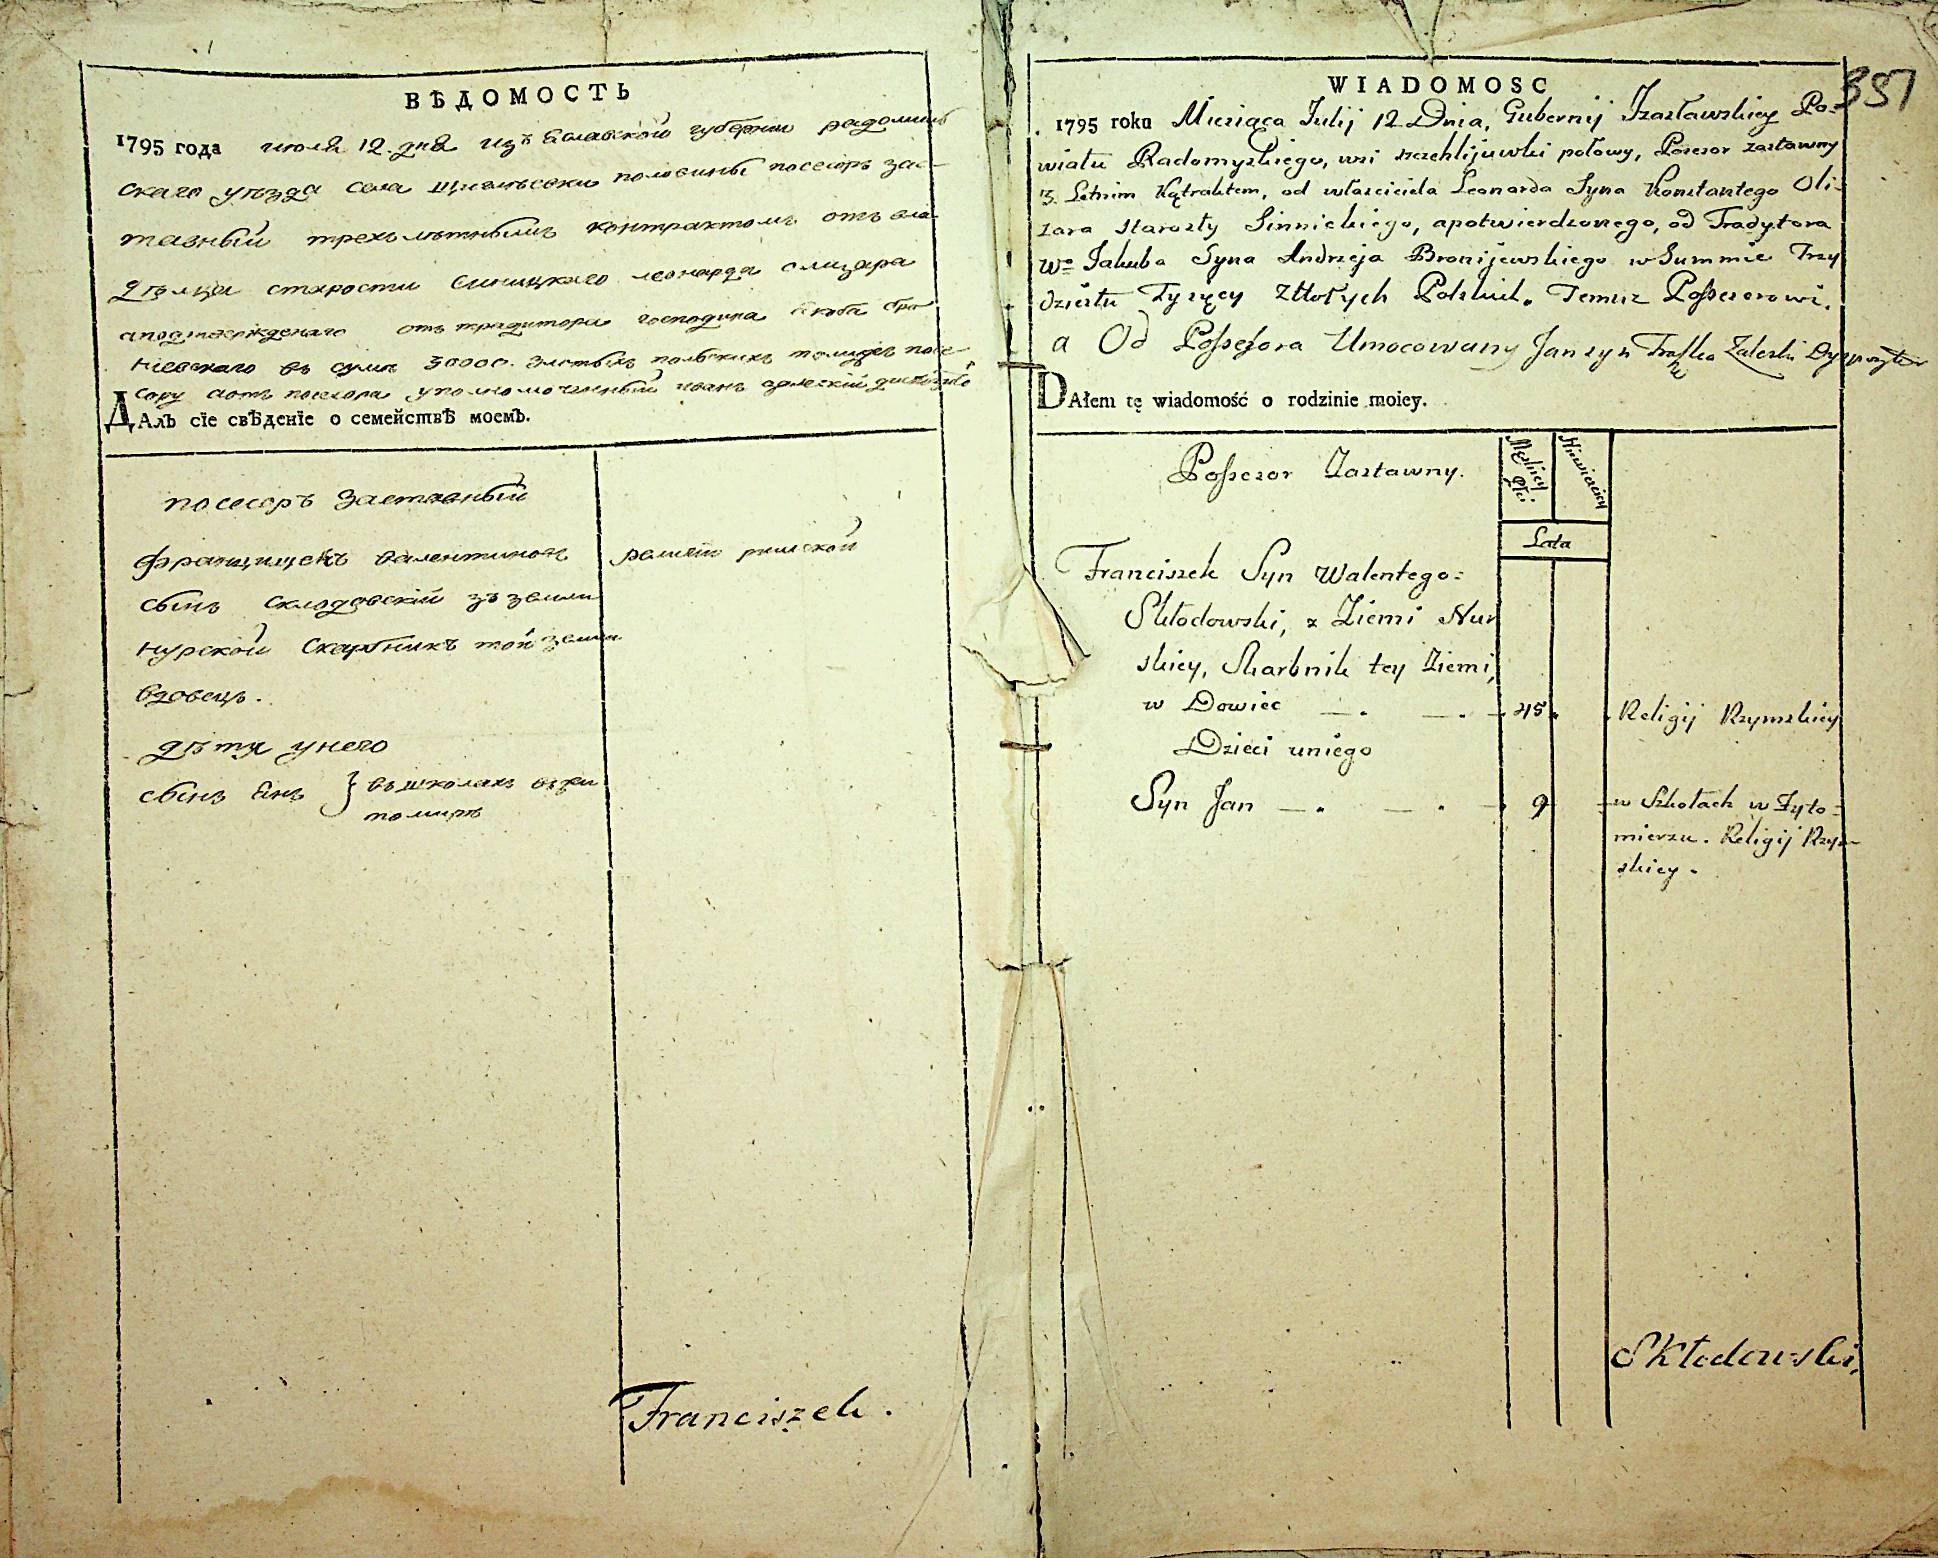 ВѢДОМОСТЬ
1795 года июля 12. дня изъ Еславской губернии радомиль
скаго уезда села половины посесоръ зас-
тавный трехълѣтнымъ контрактомъ отъ вла-
дѣлца старосты синицкаго леонарда олизара
аподтвержденаго отъ традитора господина якоба бро
ниевскаго въ сумѣ 30000. злотыхъ польскихъ томуже посе-
сору аотъ посесора уполномоченный иванъ залескій
ДАлъ сїе свѣденїе о семействѣ моемъ.
посесоръ заставный
францишекъ валентинов
сынъ склодовскій зъ земли
нурской скарбникъ той земли
вдовецъ.
дѣти унего
сынъ Янъ } въ школахъ въ жи
томирѣ
религіи римской
Franciszek.
351
WIADOMOSC
1795 roku Miesiąca Julij 12 Dnia, Gubernij Izasławskiey Po-
wiatu Radomyskiego, wsi połowy, Posesor zastawny
3. Letnim Kątraktem, od właściciela Leonarda Syna Konstantego Oli-
zara starosty Sinnickiego, apotwierdzonego, od Tradytora
Wo Jakuba Syna Andrzeja Bronijewskiego w Summie Trzy
dziestu Tysięcy Złłotych Polskich. Temuz Possesorowi.
a Od Possesora Umocowany Jan syn Zaleski
DAłem tę wiadomość o rodzinie moiey.
Possesor Zastawny.
Męskiey płci
Niewieściey
Lata
Franciszek Syn Walentego=
Skłodowski, z Ziemi Nur
skiey, Skarbnik tey Ziemi,
w Dowiec — . — . — 45. . Religij Rzymskiey
Dzieci uniego
Syn Jan — . — . — 9 — w Szkołach w Zyto=
mierzu. Religij Rzym-
skiey.
Skłodowski,